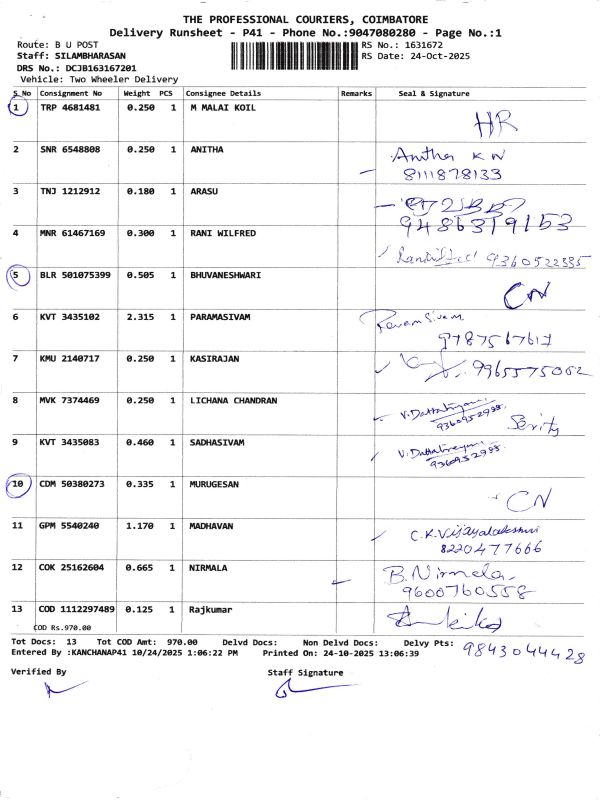 THE PROFESSIONAL COURIERS, COIMBATORE
Delivery Runsheet - P41 - Phone No.:9047080280 - Page No.:1
Route: B U POST
RS No.: 1631672
Staff: SILAMBHARASAN
RS Date: 24-Oct-2025
DRS No.: DCJB163167201
Vehicle: Two Wheeler Delivery
S No Consignment No Weight PCS Consignee Details Remarks Seal & Signature
1 TRP 4681481 0.250 1 M MALAI KOIL
HR
2 SNR 6548808 0.250 1 ANITHA
Anitha K N
8111878133
3 TNJ 1212912 0.180 1 ARASU
9486319153
4 MNR 61467169 0.300 1 RANI WILFRED
9360522335
5 BLR 501075399 0.505 1 BHUVANESHWARI
CN
6 KVT 3435102 2.315 1 PARAMASIVAM
9787567617
7 KMU 2140717 0.250 1 KASIRAJAN
9965575062
8 MVK 7374469 0.250 1 LICHANA CHANDRAN
V. Dattatreyan
9360952988
9 KVT 3435083 0.460 1 SADHASIVAM
V. Dattatreyan
9360952988
10 CDM 50380273 0.335 1 MURUGESAN
CN
11 GPM 5540240 1.170 1 MADHAVAN
C.K.Vijayalakshmi
8220477666
12 COK 25162604 0.665 1 NIRMALA
B. Nirmala
9600760558
13 COD 1112297489 0.125 1 Rajkumar
COD Rs.970.00
Tot Docs: 13 Tot COD Amt: 970.00 Delvd Docs: Non Delvd Docs: Delvy Pts:
9843044428
Entered By :KANCHANAP41 10/24/2025 1:06:22 PM Printed On: 24-10-2025 13:06:39
Verified By Staff Signature